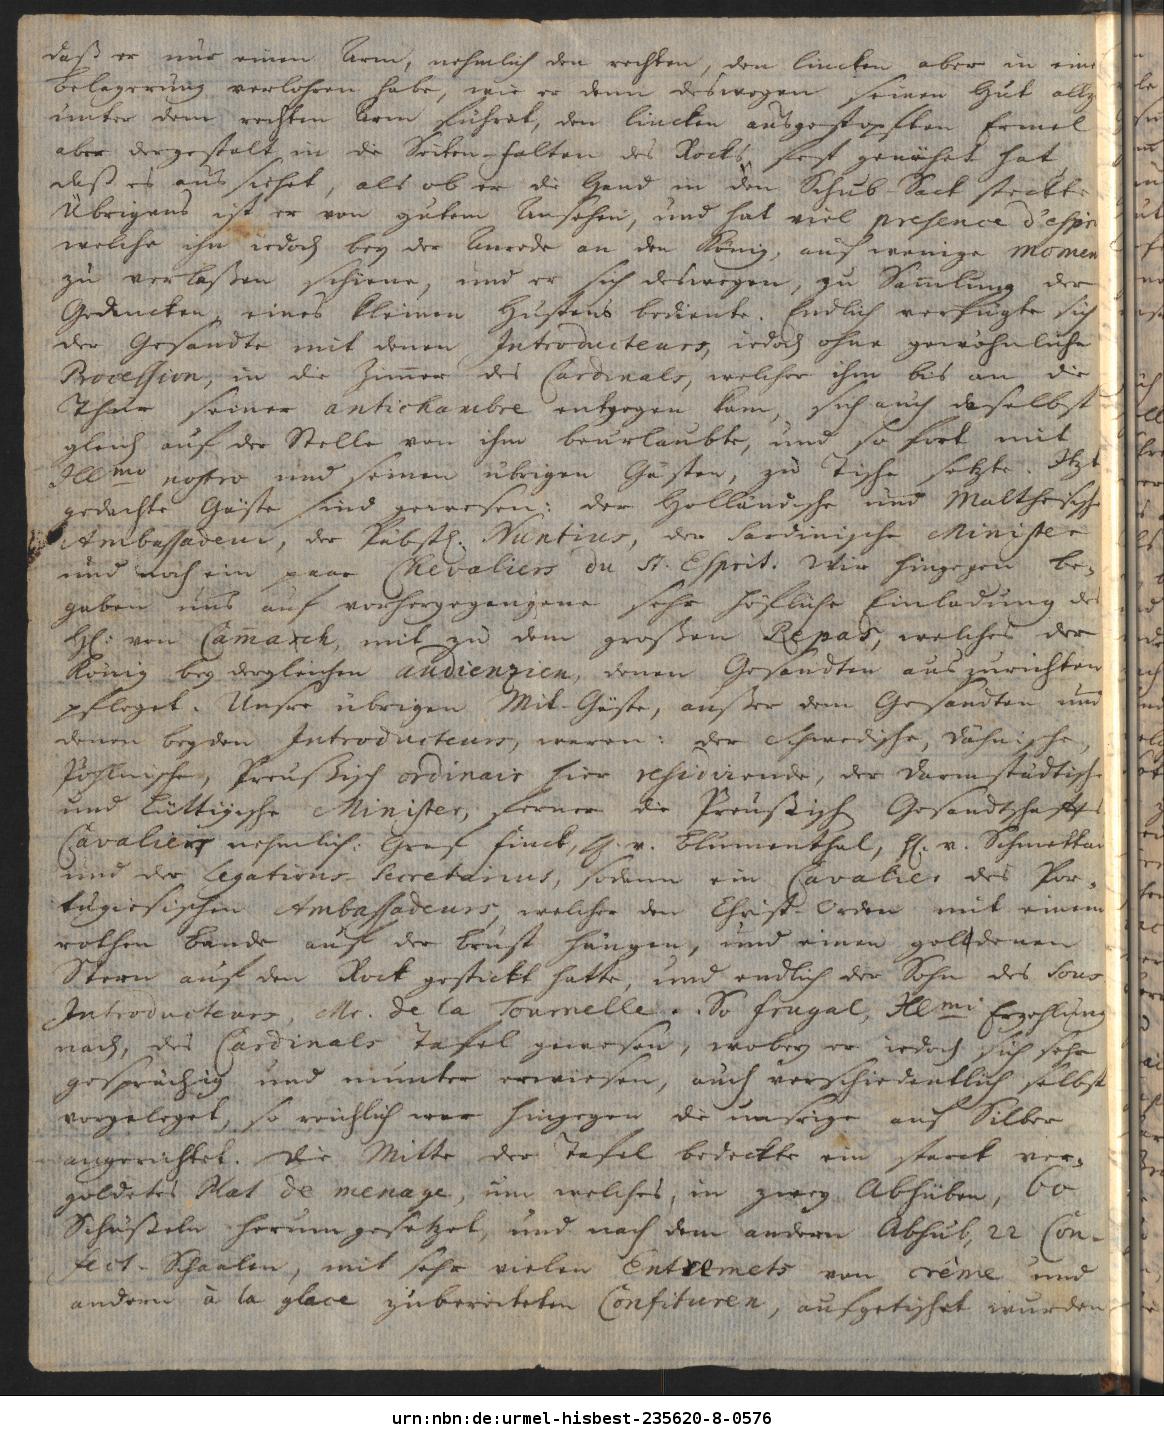 daß er nur einen Arm, nehmlich den rechten, den lincken aber in eine
Belagerung verlohren habe, wie er denn deswegen seinen Hut allz
unter dem rechten Arm führet, den lincken ausgestopften Ermel
aber dergestalt in die Seiten-falten des Rocks fest genöhet hat
daß es aus siehet, als ob er die Hand in den Schub-Sack steckte
Übrigens ist er von gutem Ansehen, und hat viel presence d'espri
welche ihn iedoch bey der Anrede an den König, auf wenige momen
zu verlaßen schiene, und er sich deswegen, zu Sam̄lung der
Gedancken, eines kleinen Hustens bediente. Endlich verfügte sich
der Gesandte mit denen Introducteurs, iedoch ohne gewöhnliche
Procession, in die Zim̄er des Cardinals, welcher ihm bis an die
Thür seiner antichambre entgegen kam, sich auch daselbst
gleich auf der Stelle von ihm beurlaubte, und so fort mit
Illmo nostro und seinen übrigen Gästen, zu Tische setzte. Itzt
gedachte Gäste sind gewesen: der Holländische und Maltheische
Ambassadeur, der Päbstl. Nuntius, der Sardinische Minister
und noch ein paar Chevaliers du St. Esprit. Wir hingegen be-
gaben uns auf vorhergegangene sehr höfliche Einladung des
H. von Cam̄arch, mit zu dem großen Repas, welches der
König bey dergleichen audienzien, denen Gesandten auszurichten
pfleget. Unsre übrigen Mit-Gäste, außer dem Gesandten und
denen beyden Introducteurs, waren: der Schwedische, Dähnische,
Pohlnische, Preußisch ordinair hier residirende, der Darmstädtische
und Lüttigische Minister, ferner die Preußisch Gesandtschaffts
Cavaliers nehmlich: Graf Finck, H. v. Blumenthal, H. v. Schmettau
und der Legations-Secretairius, sodann ein Cavalier des Por-
tugiesischen Ambassadeurs, welcher den Christ-Orden mit einem
rothen Bande auf der Brust hängen, und einen goldenen
Stern auf den Rock gestickt hatte, und endlich der Sohn des Sous
Introducteurs, Mr. de la Tournelle. So frugal, Illmi Erzehlung
nach, des Cardinals Tafel gewesen, wobey er iedoch sich sehr
gesprächig und munter erwiesen, auch verschiedentlich selbst
vorgeleget, so reichlich war hingegen die unsrige auf Silber
angerichtet. Die Mitte der Tafel bedeckte ein starck ver-
goldetes Plat de menage, um welches, in zwey Abhüben, 60
Schüßeln herumgesetzet, und nach dem andern Abhub, 22 Con-
fect-Schaalen, mit sehr vielen Entremets von crême und
andern à la glace zubereiteten Confituren, aufgetischet wurden
urn:nbn:de:urmel-hisbest-235620-8-0576